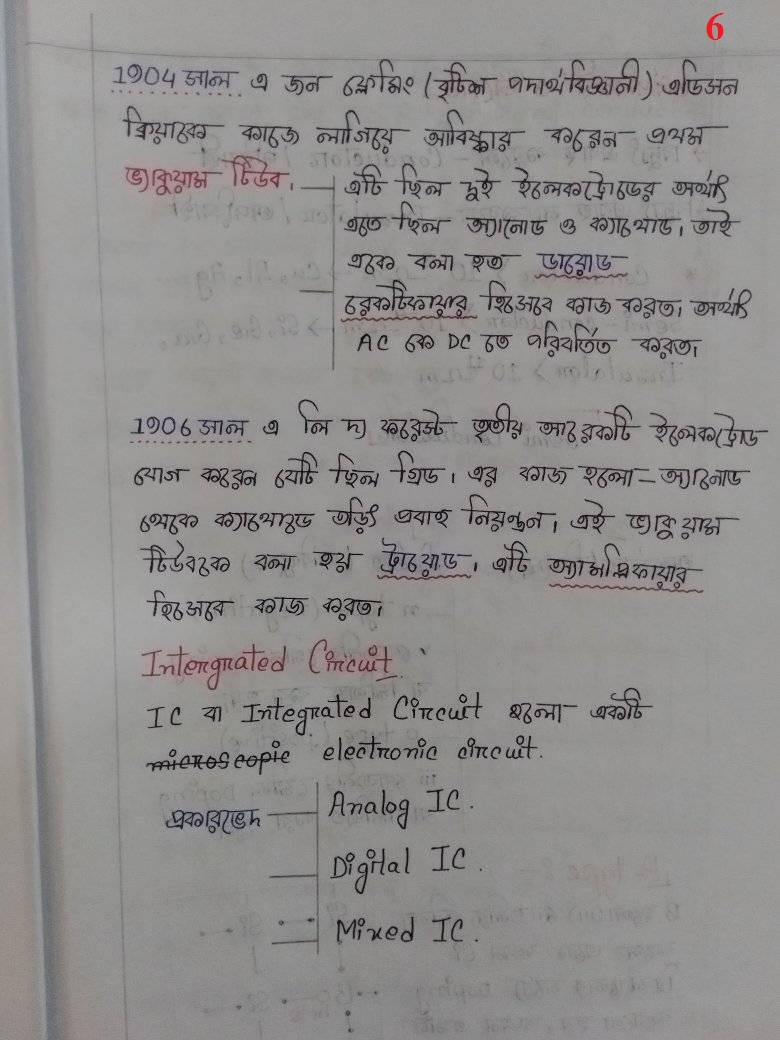 6
1904 সাল এ জন ফ্লেমিং (বৃটিশ পদার্থবিজ্ঞানী) এডিসন
ক্রিয়াকে কাজে লাগিয়ে আবিষ্কার করেন প্রথম
ভ্যাকুয়াম টিউব। — এটি ছিল দুই ইলেকট্রোডের অর্থাৎ
এতে ছিল অ্যানোড ও ক্যাথোড। তাই
একে বলা হত ডায়োড
— রেকটিফায়ার হিসেবে কাজ করত। অর্থাৎ
AC কে DC তে পরিবর্তিত করত।
1906 সাল এ লি দ্য ফরেস্ট তৃতীয় আরেকটি ইলেকট্রোড
যোগ করেন যেটি ছিল গ্রিড। এর কাজ হলো - অ্যানোড
থেকে ক্যাথোডে তড়িৎ প্রবাহ নিয়ন্ত্রন। এই ভ্যাকুয়াম
টিউবকে বলা হয় ট্রায়োড। এটি অ্যামপ্লিফায়ার
হিসেবে কাজ করত।
Intergrated Circuit.
IC বা Integrated Circuit হলো একটি
microscopic electronic circuit.
প্রকারভেদ — Analog IC.
— Digital IC.
— Mixed IC.